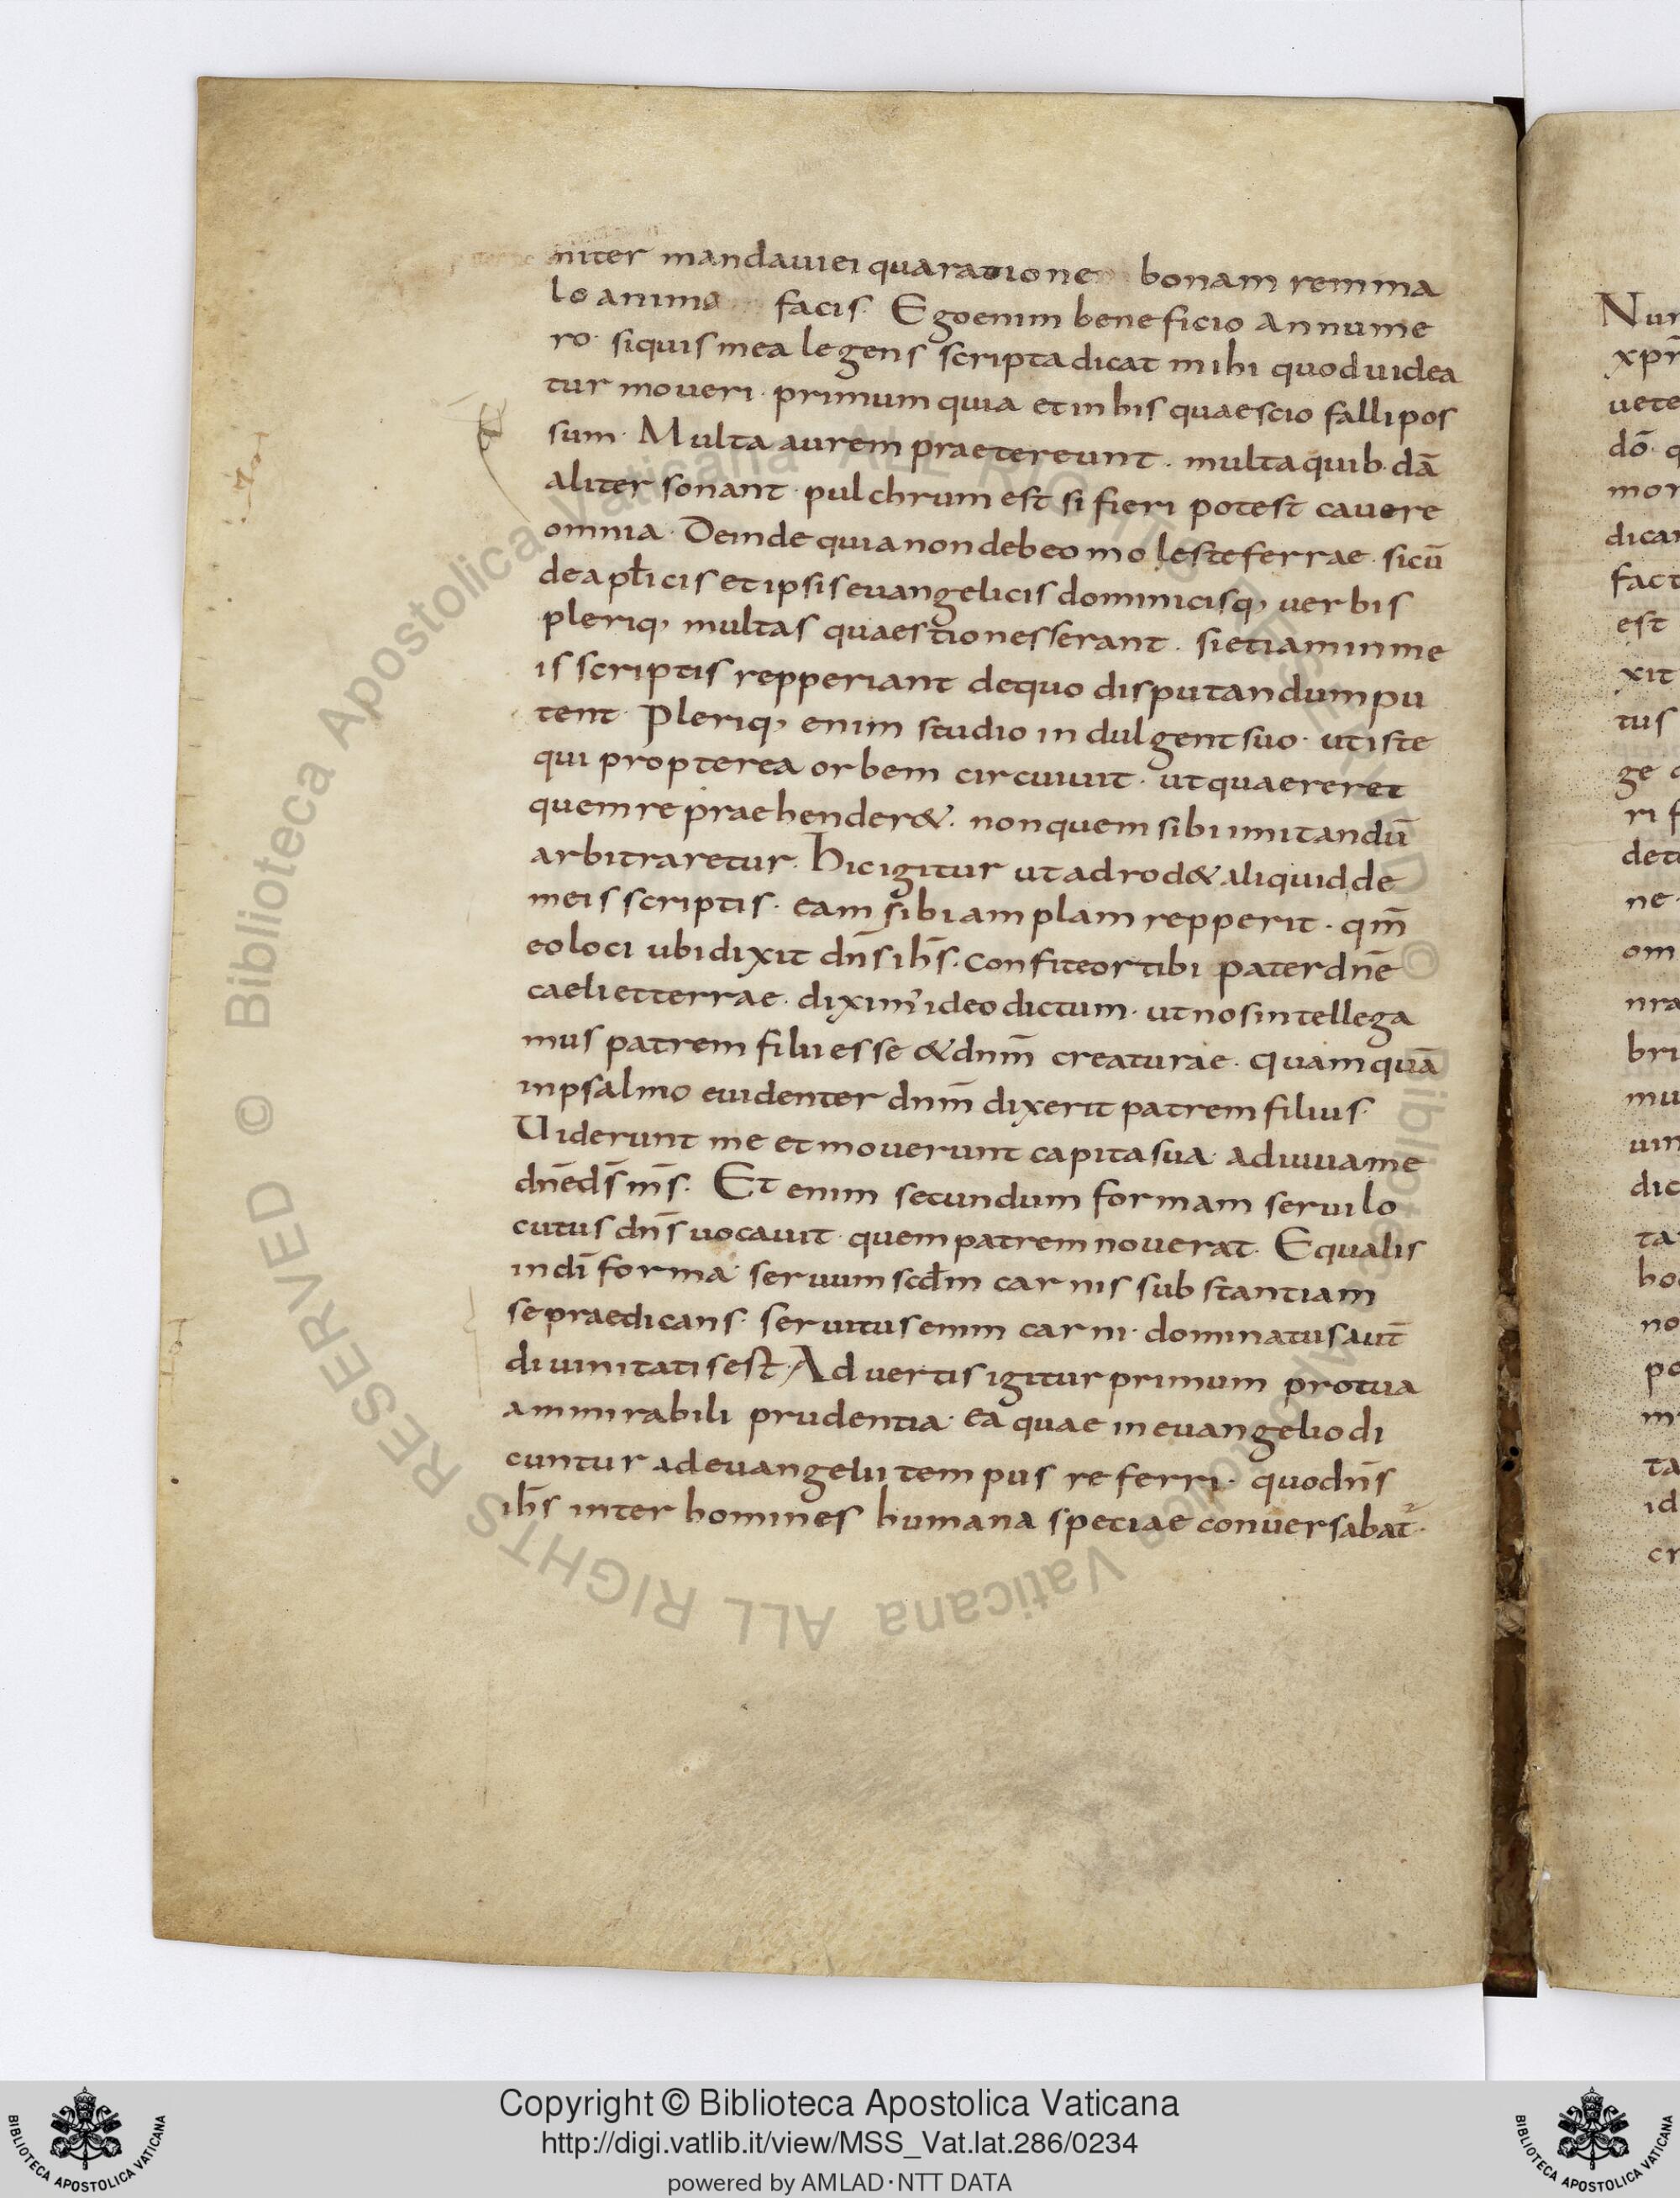 niter mandaui ei qua ratione bonam rem ma
lo animo facis. Ego enim beneficio annume
ro. si quis mea legens scripta dicat mihi quo duidea
tur moueri. primum quia et in his quae scio falli pos
sum. Multa aurem praetereunt. multa quib. dā
aliter sonant. pulchrum est si fieri potest cauere
omnia. Deinde quia non debeo moleste ferrae. sicū
de apłicis et ipsis euangelicis dominicisq, uerbis
pleriq, multas quaestiones serant. si etiam in me
is scriptis repperiant de quo disputandum pu
tent. Pleriq, enim studio indulgent suo. ut iste
qui propterea orbem circuiuit. ut quaereret
quem repraehender&. non quem sibi imitandū
arbitraretur. Hic igitur ut adrod& aliquid de
meis scriptis. eam sibi amplam repperit. qm̄
eo loci ubi dixit dn̄s ih̄s. confiteor tibi pater dn̄e
caeli et terrae. diximꝰ ideo dictum. ut nos intellega
mus patrem filii esse & dnm̄ creaturae. quamquā
in psalmo euidenter dnm̄ dixerit patrem filius.
Uiderunt me et mouerunt capita sua. adiuua me
dn̄e ds̄ ms̄. Et enim secundum formam serui lo
cutus dn̄s uocauit. quem patrem nouerat. Equalis
in dī forma. seruum scđm carnis substantiam
se praedicans. seruitus enim carni. dominatus aut̄
diuinitatis est. Aduertis igitur primum pro tua
ammirabili prudentia. ea quae in euangelio di
cuntur ad euangelii tempus referri. quo dn̄s
ih̄s inter homines humana speciae conuersabat̄.
Nun
xpī
uete
dō. q
mor
dicar
fact
est
xit
tus
ge
ri f
detu
ne.
om
nra
bri
mu
uin
dic
ta
ho
no
pe
m
ta
id
cr
© Biblioteca Apostolica Vaticana ALL RIGHTS RESERVED © Biblioteca Apostolica Vaticana ALL RIGHTS RESERVED
Copyright © Biblioteca Apostolica Vaticana
http://digi.vatlib.it/view/MSS_Vat.lat.286/0234
powered by AMLAD·NTT DATA
BIBLIOTECA APOSTOLICA VATICANA
BIBLIOTECA APOSTOLICA VATICANA